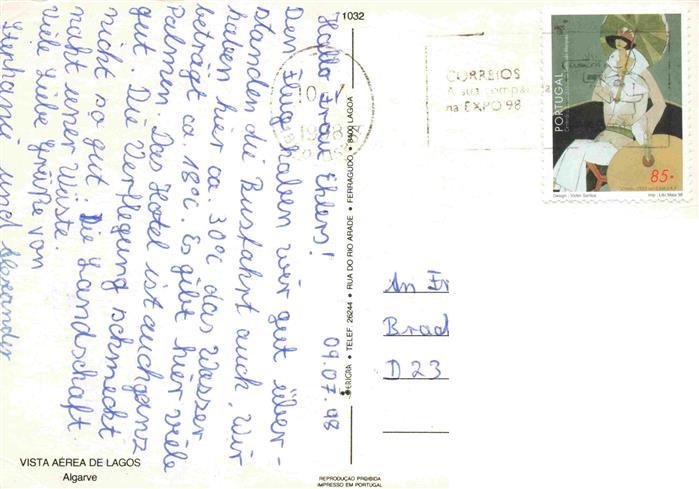 Hallo Frau Ehlers!
09.07.98
Den Flug haben wir gut über-
standen die Busfahrt auch. Wir
haben hier ca 30°C das Wasser
beträgt ca. 18°C. Es gibt hier viele
Palmen. Das Hotel ist auch ganz
gut. Die Verflegung schmeckt
nicht so gut. Die Landschaft
naft einer Wüste.
Viele Liebe Grüße von
Stephanie und Alexander
VISTA AÉREA DE LAGOS
Algarve
1032
TELEF. 26244 • RUA DO RIO ARADE • FERRAGUDO • 8400 LAGOA
REPRODUÇÃO PROIBIDA
IMPRESSO EM PORTUGAL
1998
CORREIOS
A sua companhia
na EXPO 98
PORTUGAL
85.
Design: Victor Santos
An Fr
Brad
D 23